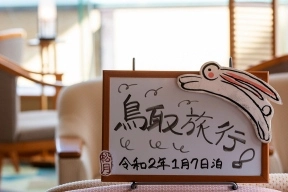 鳥取旅行
令和2年1月7日泊
松月